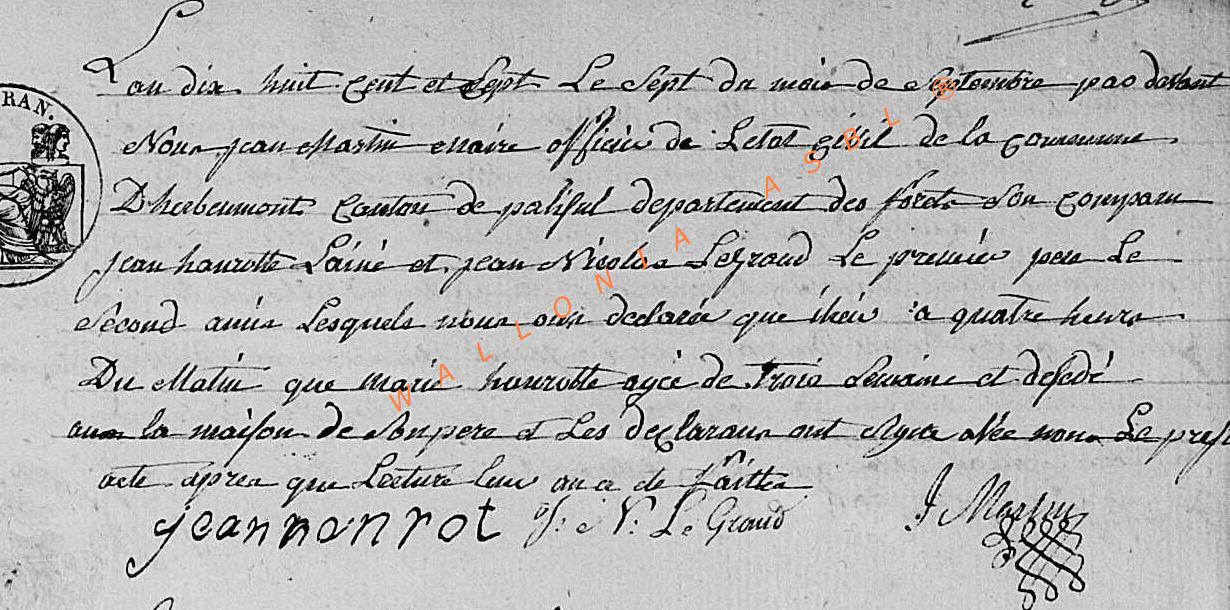 RAN.
Lan dix huit cent et Sept Le Sept du mois de Septembre par devant
Nous jean Martin Maire officier de Letat civil de la commune
Dherbeumont Canton de paliseul departement des forets Son comparu
jean hourotte Lainé et jean Nicolas LeGrand Le premier pere Le
Second amis Lesquels nous on declarée que ihier a quatre heure
Du Matin que marie hourotte agée de Trois Semaine et desedé
la maison de Son pere et Les declarans ont Signe avée nous Le
acte apres que Lecture Leur an a de faitte
jean J: N: Le Grand J Martin
WALLONIA ASBL ®